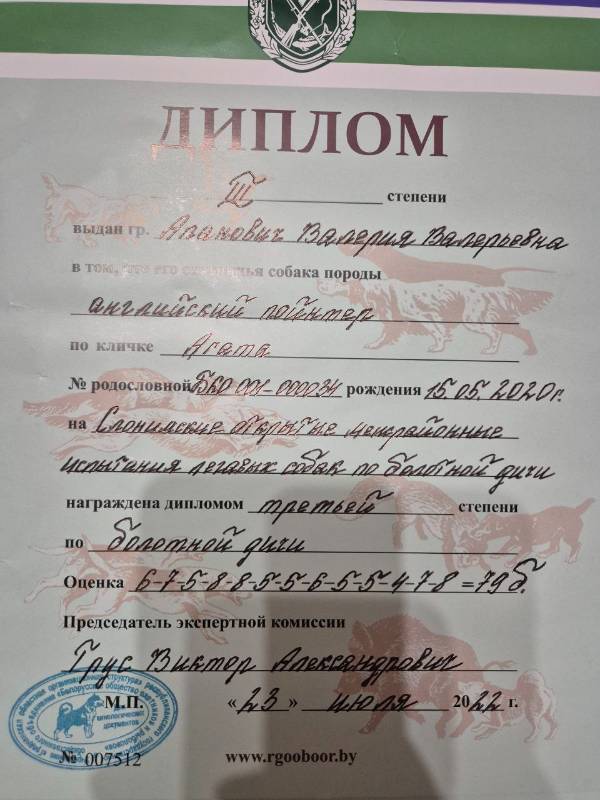 ДИПЛОМ
III степени
выдан гр. Апанович Валерия Валерьевна
в том, что его собака породы
английский пойнтер
по кличке Агата
№ родословной БКО 001-000034 рождения 15.05.2020г.
на Слонимские открытые межрайонные
испытания легавых собак по болотной дичи
награждена дипломом третьей степени
по болотной дичи
Оценка 6-7-5-8-8-5-5-6-5-5-4-7-8=79б.
Председатель экспертной комиссии
Грус Виктор Александрович
М.П. «23» июля 2022 г.
№ 007512 www.rgooboor.by